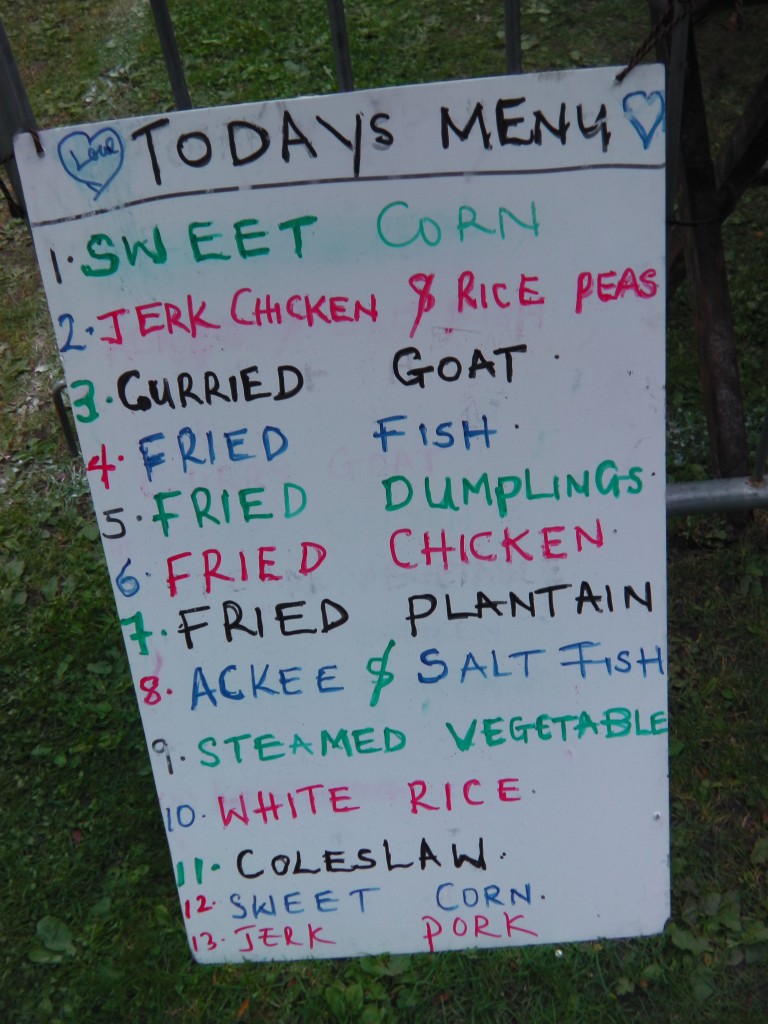 Love TODAYS MENU
1. SWEET CORN
2. JERK CHICKEN & RICE PEAS
3. CURRIED GOAT.
4. FRIED FISH.
5. FRIED DUMPLINGS.
6. FRIED CHICKEN.
7. FRIED PLANTAIN
8. ACKEE & SALT FISH
9. STEAMED VEGETABLE
10. WHITE RICE.
11. COLESLAW.
12. SWEET CORN.
13. JERK PORK